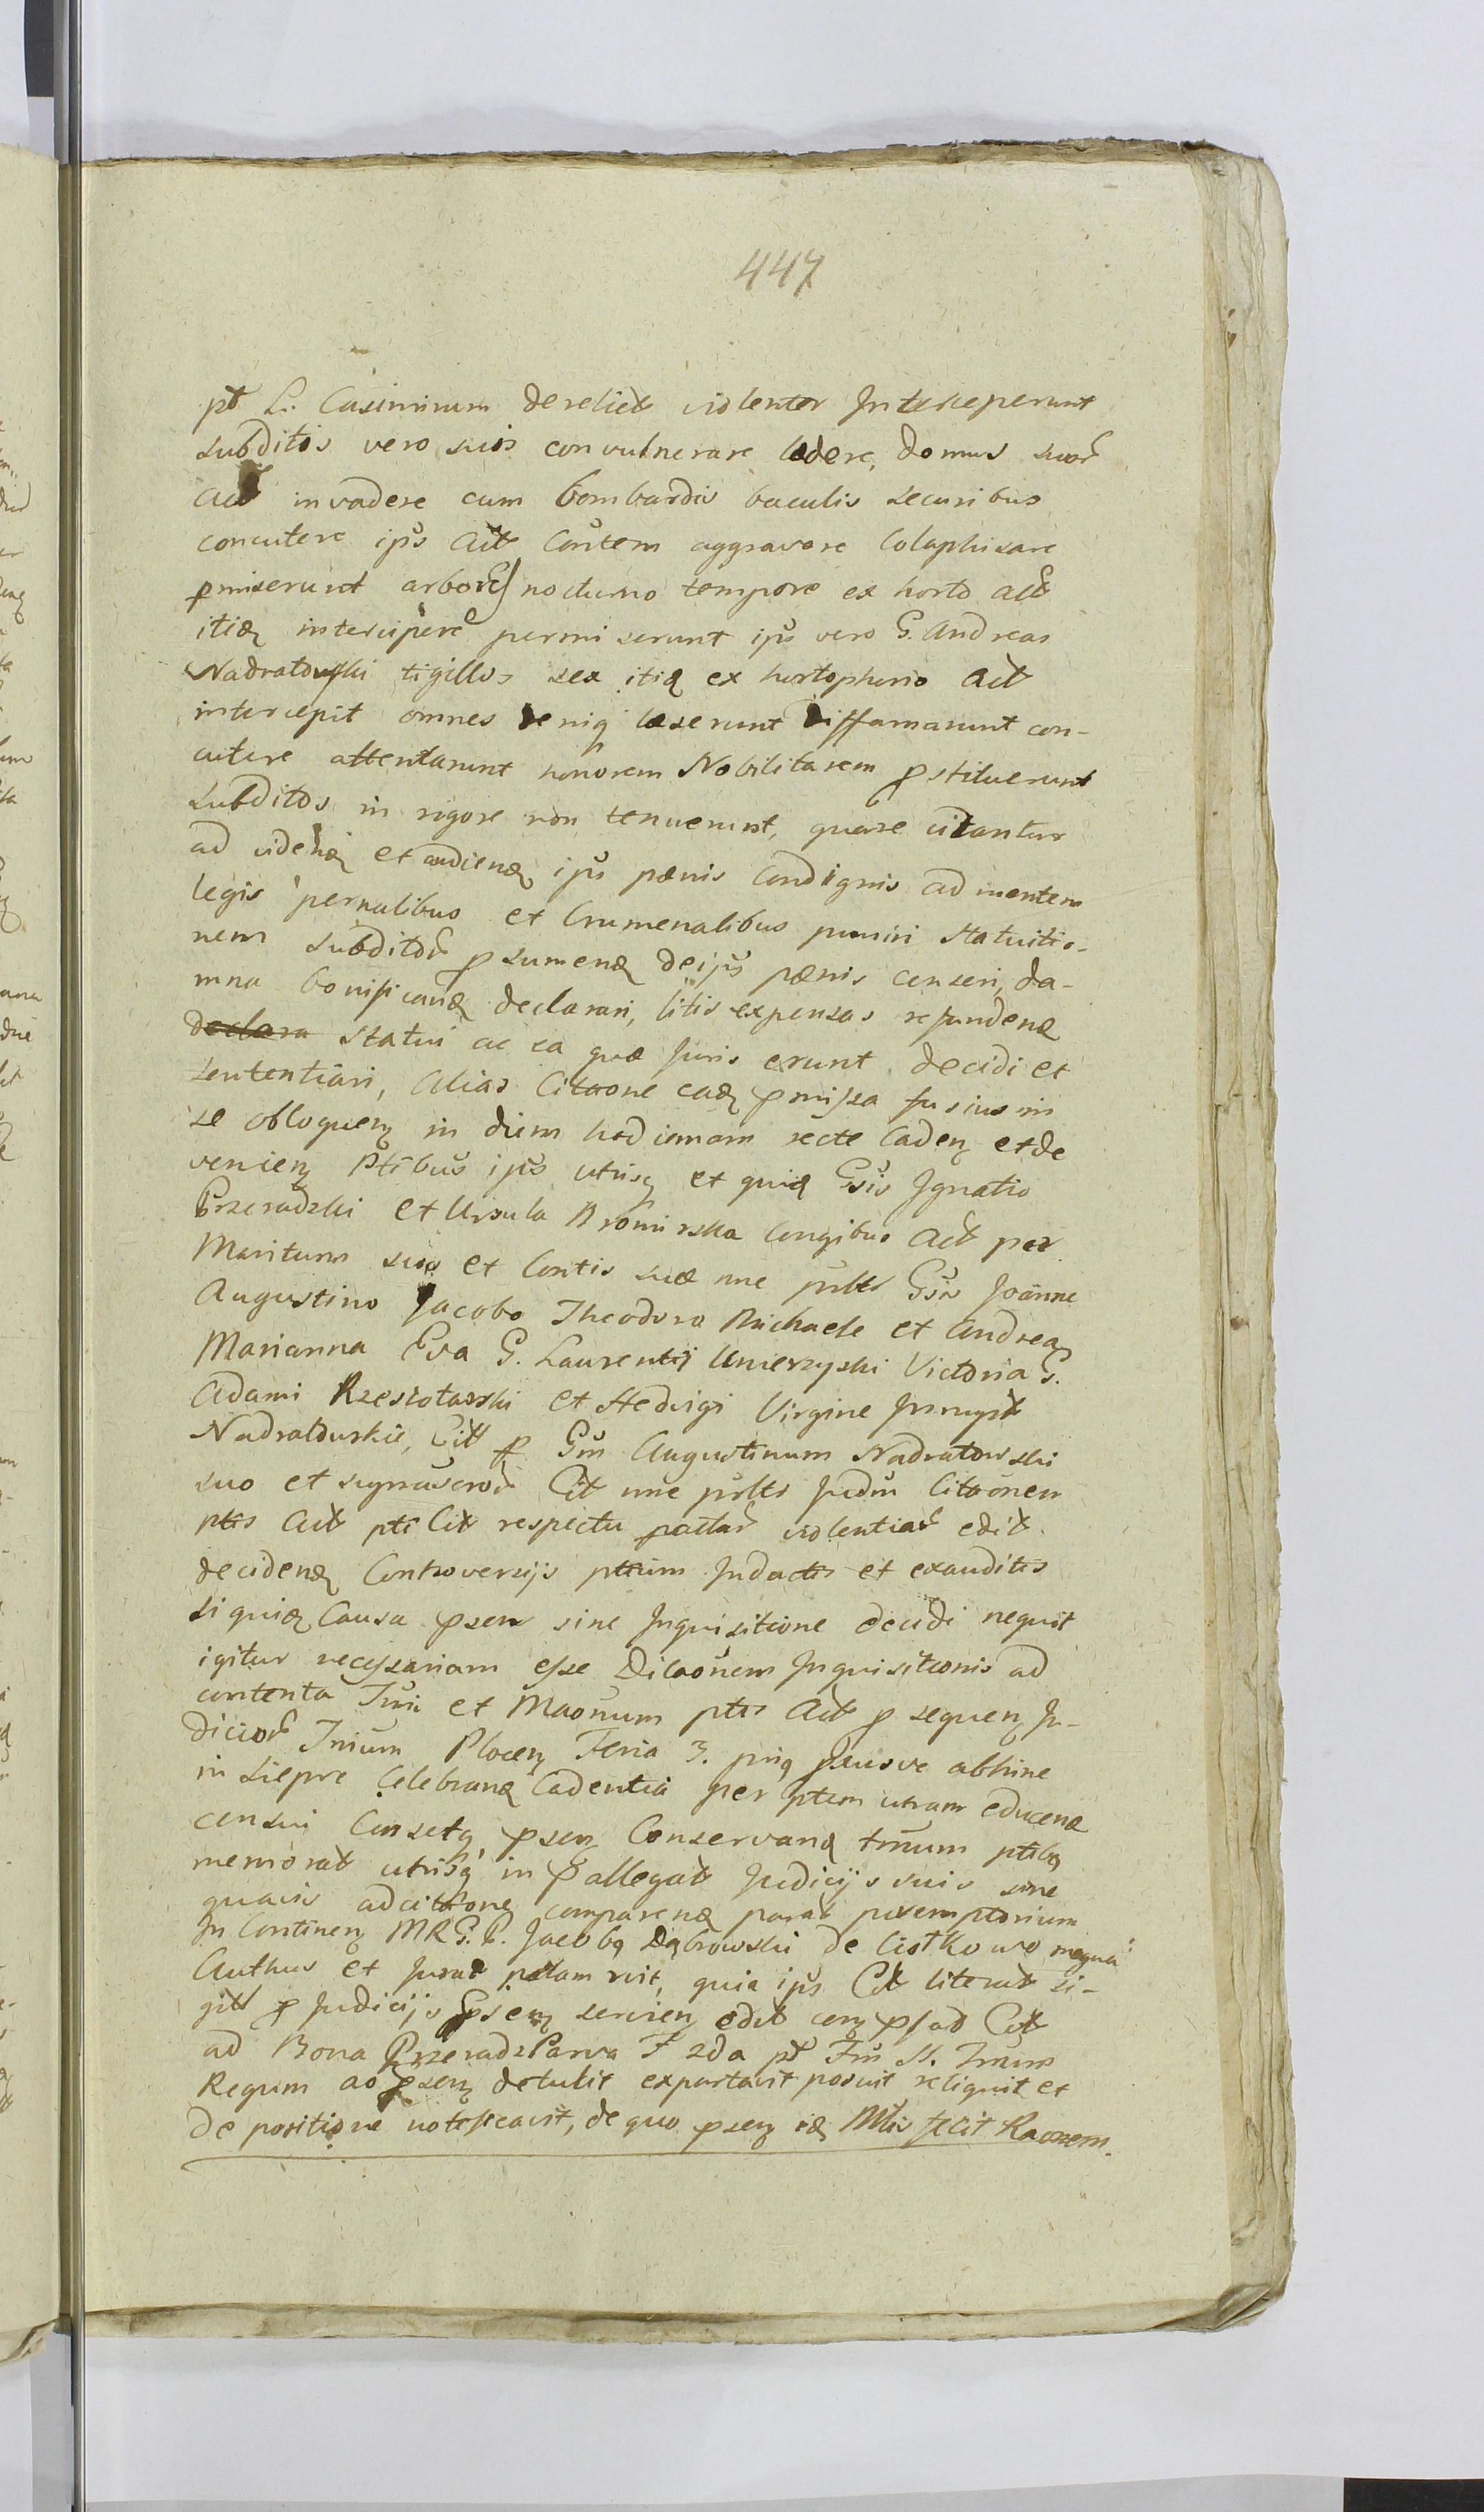 447
pt L. Casimirum derelict violenter Interceperunt
subditos vero suos convulnerare ledere, domus suor
act invadere cum bombardis baculis securibus
concutere ips Act Contem aggravare Colaphisare
pmiserunt arbores nocturno tempore ex horto act
itid intercipere permiserunt ips vero G. Andreas
Nadratowski tigillos sex itid ex hortopherio Act
intercepit omnes deniq læserunt diffamarunt con-
cutere attentarunt honorem Nobilitarem pstituerunt
subditos in rigore non tenuerunt, quare citantur
ad videnq et audienq ips pænis Condignis ad mentem
legis pernalibus et Crumenalibus puniri statuitio-
nem subditor p sumenq de ips pænis censeri, da-
mna bonificanq declarari, litis expensas refundenq
declara statui ac ea quæ Juris erunt decidi et
sententiari, Alias Citaone eaq pmissa fusius in
se obloquen in diem hodiernam recte Caden et de
venien Ptibus ips utrisq et quiq Gsis Ignatio
Przeradzki et Ursula Bromirska Congibus Act per
Maritum suo et Contis suæ nne pnltr Gsis Joanne
Augustino Jacobo Theodoro Michaele et Andrea
Marianna Eva G. Laurentij Umierzyski Victoria G.
Adami Rzeszotarski et Hedvigi Virgine
Nadratowskie, Citt p Gm Augustinum Nadratowski
suo et supranscror Cit nne pnltr Judm Citaonem
ptis Act pti Cit respectu patlar violentiar edit
decidenq Controversijs ptium Inductis et exauditis
siquiq Causa psen sine Inquisitione decidi nequit
igitur necessariam esse Dilaonem Inquisitionis ad
contenta Tmi et Maonum ptis Act p sequen Ju-
dicior Tmium Plocen Feria 3. pnq prusve abhinc
in Siepre Celebranq Cadentia per ptem utram educenq
censui Censetq psen Conservanq tmum ptibq
memorat utrisq in p allegat Judicijs suis sine
quavis adcitaone comparenq parat peremptorium
In Continen MRG. P. Jacobq Dąbrowski de Ciołkowo
Authus et Jurat palam rcit, quia ips Cit literat si-
gill p Judicijs Gpsien servien edit cem psad Cit
ad Bona Przeradz Parva F 2da pt Fm St. Tmum
Regum ao psen detulit exportavit posuit reliquit et
de positione notificavit, de quo psen id Mtlis fecit Raonem.